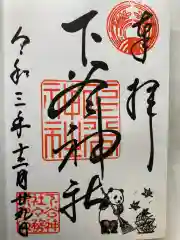 奉拝
下谷神社
令和三年十二月廿九日